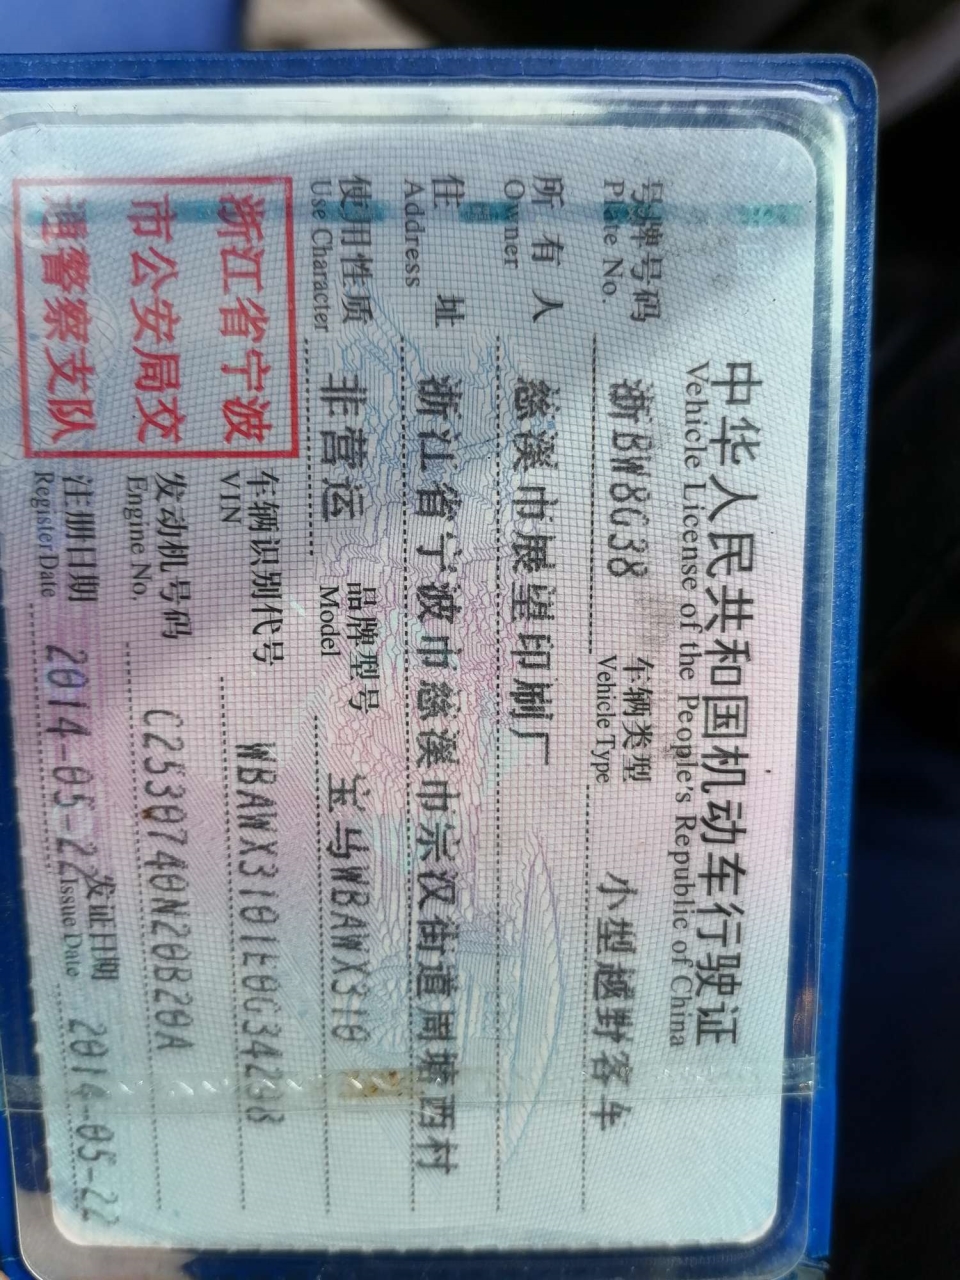 中华人民共和国机动车行驶证
Vehicle License of the People's Republic of China
号牌号码 浙BW8G38 车辆类型 小型越野客车
Plate No. Vehicle Type
所有人 慈溪市展望印刷厂
Owner
住址 浙江省宁波市慈溪市宗汉街道周塘西村
Address
使用性质 非营运 品牌型号 宝马WBAWX310
Use Character Model
浙江省宁波
市公安局交
通警察支队
车辆识别代号 WBAWX3101E0G34298
VIN
发动机号码 C2530740N20B20A
Engine No.
注册日期 2014-05-22 发证日期 2014-05-22
Register Date Issue Date